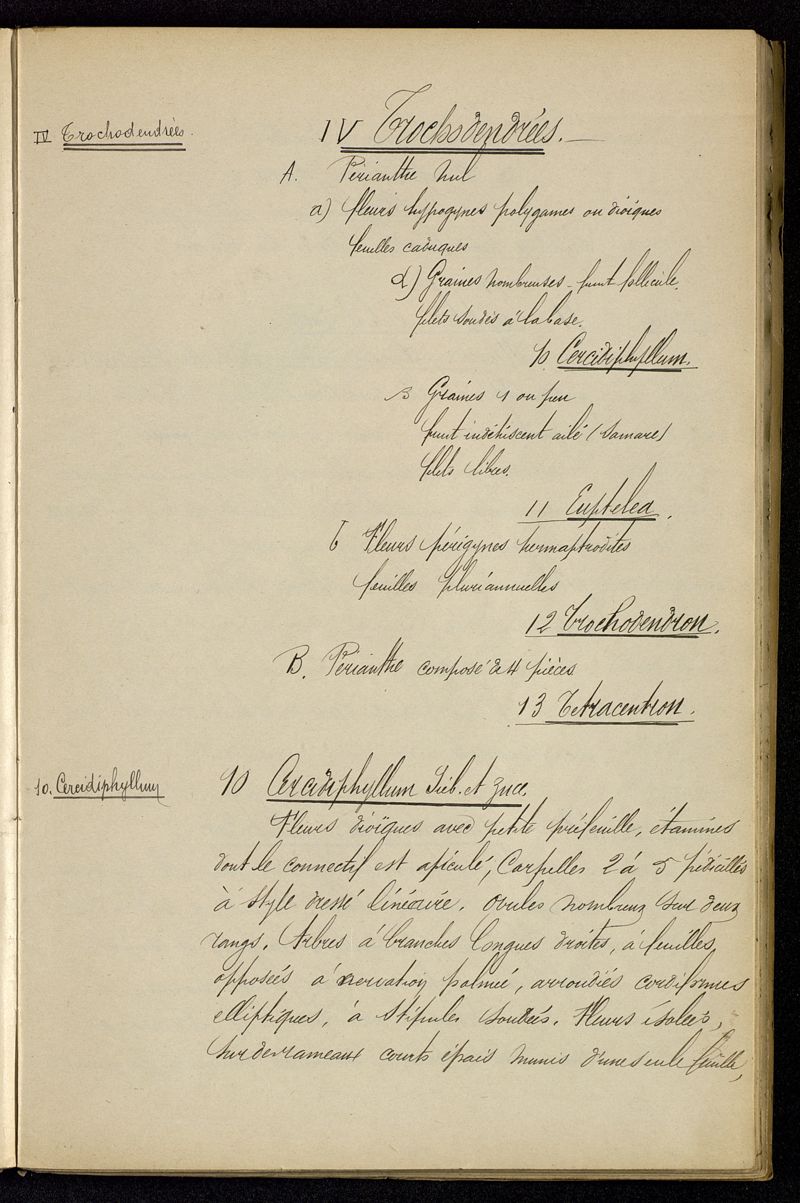 IV Trochodendrées.
IV Trochodendrées.—
A. Périanthe nul
a) fleurs hypogynes polygames ou dioïques
feuilles caduques
α) Graines nombreuses - fruit follicule.
filets soudés à la base.
10 Cercidiphyllum.
β Graines 1 ou peu
fruit indéhiscent ailé (samare)
filets libres.
11 Euptelea.
b Fleurs périgynes hermaphrodites
feuilles pluriannuelles
12 Trochodendron.
B. Périanthe composé de 4 pièces
13 Tetracentron.
10. Cercidiphyllum
10 Cercidiphyllum Sieb. et Zucc.
Fleurs dioïques avec petite préfeuille, étamines
dont le connectif est apiculé, Carpelles 2 à 5 pédicellés
à style dressé linéaire. Ovules nombreux sur deux
rangs. Arbres à branches longues droites, à feuilles
opposées à nervation palmée, arrondies cordiformes
elliptiques, à stipules soudées. Fleurs isolées,
sur des rameaux courts épais munis d'une seule feuille,